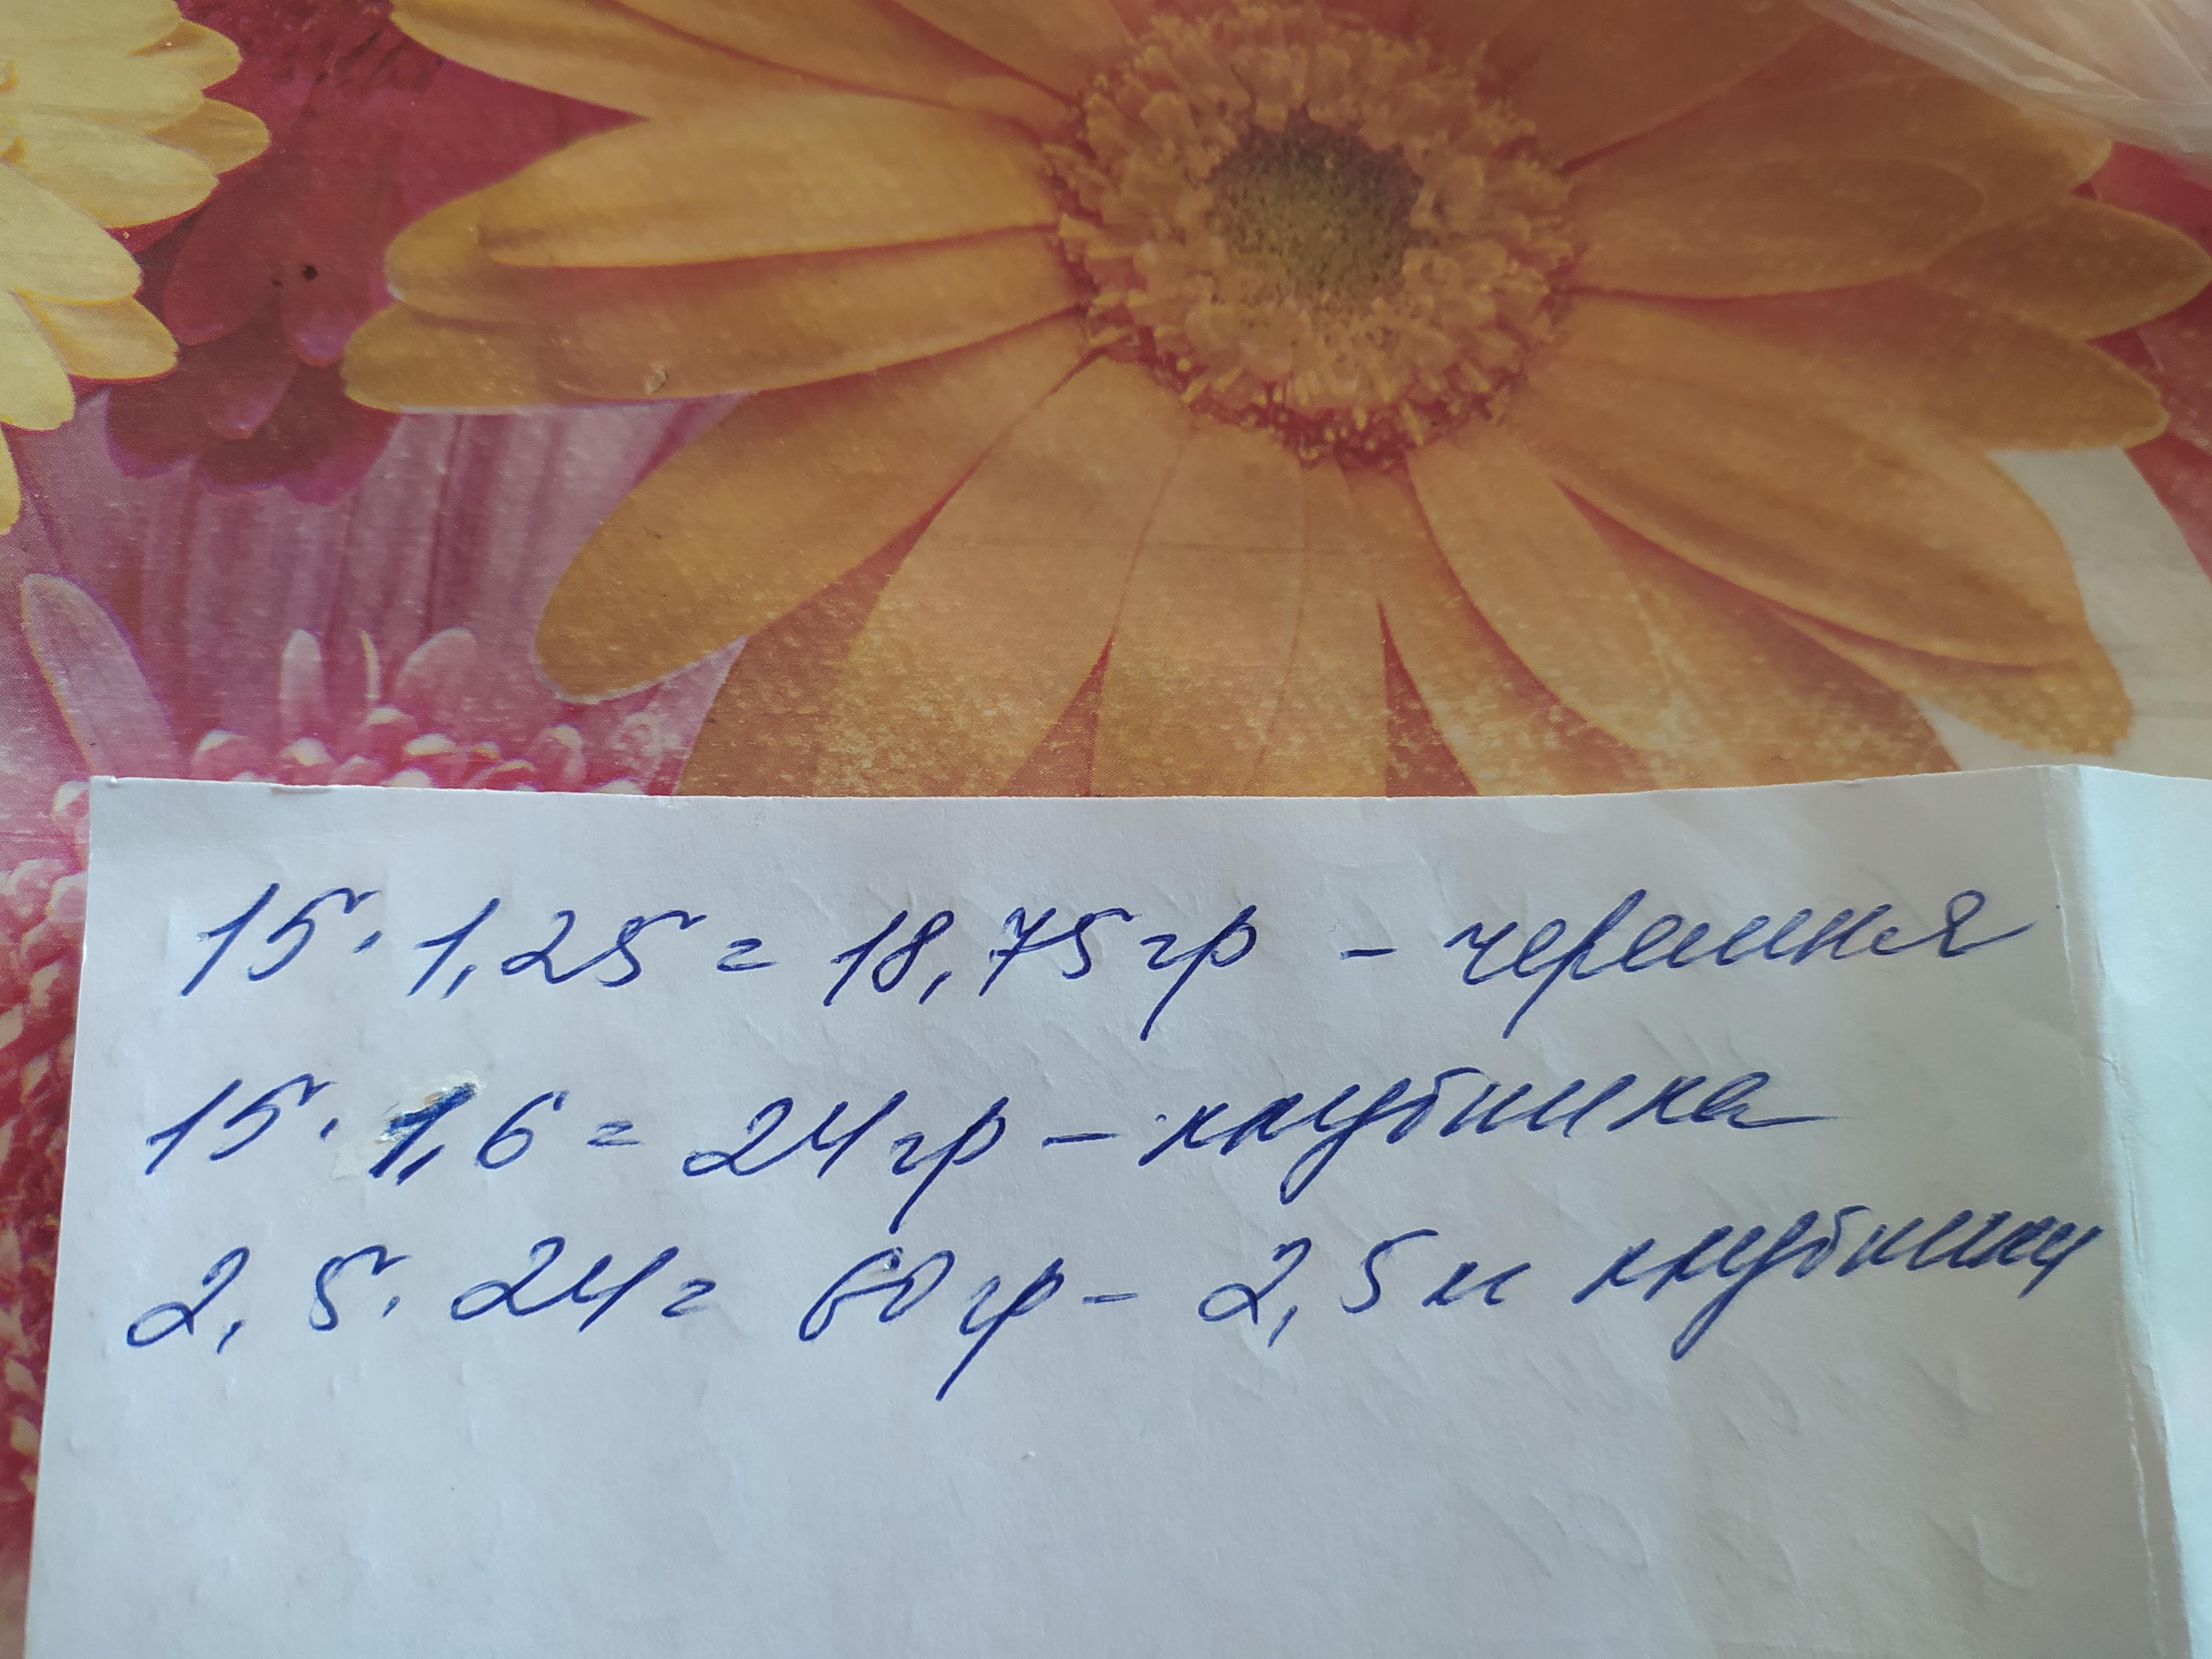 15. 1,25 = 18,75 гр - черешня
15. 1,6 = 24 гр - клубника
2,5. 24 = 60 гр - 2,5 кг клубники